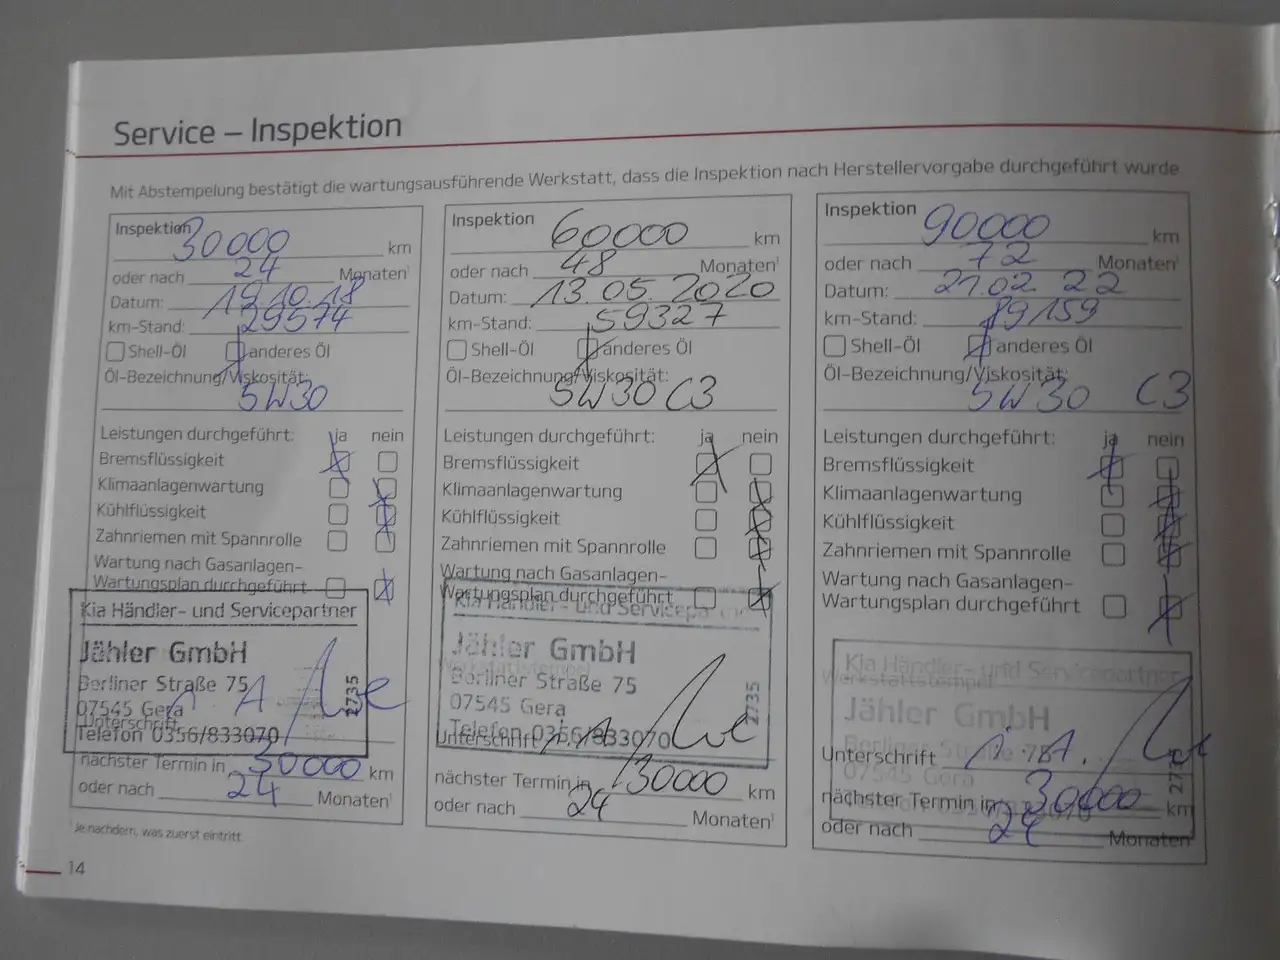 Service – Inspektion
Mit Abstempelung bestätigt die wartungsausführende Werkstatt, dass die Inspektion nach Herstellervorgabe durchgeführt wurde
Inspektion 30000 km
oder nach 24 Monaten¹
Datum: 19.10.18
km-Stand: 29574
Shell-Öl anderes Öl
Öl-Bezeichnung/Viskosität:
5W30
Leistungen durchgeführt: ja nein
Bremsflüssigkeit
Klimaanlagenwartung
Kühlflüssigkeit
Zahnriemen mit Spannrolle
Wartung nach Gasanlagen-
Wartungsplan durchgeführt
Kia Händler- und Servicepartner
Jähler GmbH
Berliner Straße 75
07545 Gera
Telefon 0356/833070
2735
Unterschrift
nächster Termin in 30000 km
oder nach 24 Monaten¹
Inspektion 60000 km
oder nach 48 Monaten¹
Datum: 13.05.2020
km-Stand: 59327
Shell-Öl anderes Öl
Öl-Bezeichnung/Viskosität:
5W30 C3
Leistungen durchgeführt: ja nein
Bremsflüssigkeit
Klimaanlagenwartung
Kühlflüssigkeit
Zahnriemen mit Spannrolle
Wartung nach Gasanlagen-
Wartungsplan durchgeführt
Kia Händler- und Servicepartner
Jähler GmbH
Werkstattstempel
Berliner Straße 75
07545 Gera
Telefon 0356/833070
2735
Unterschrift i.A.
nächster Termin in 30000 km
oder nach 24 Monaten¹
Inspektion 90000 km
oder nach 72 Monaten¹
Datum: 21.02.22
km-Stand: 89159
Shell-Öl anderes Öl
Öl-Bezeichnung/Viskosität:
5W30 C3
Leistungen durchgeführt: ja nein
Bremsflüssigkeit
Klimaanlagenwartung
Kühlflüssigkeit
Zahnriemen mit Spannrolle
Wartung nach Gasanlagen-
Wartungsplan durchgeführt
Kia Händler- und Servicepartner
Werkstattstempel
Jähler GmbH
Berliner Straße 75
07545 Gera
2735
Unterschrift i.A.
nächster Termin in 30000 km
oder nach 24 Monaten
¹Je nachdem, was zuerst eintritt.
14